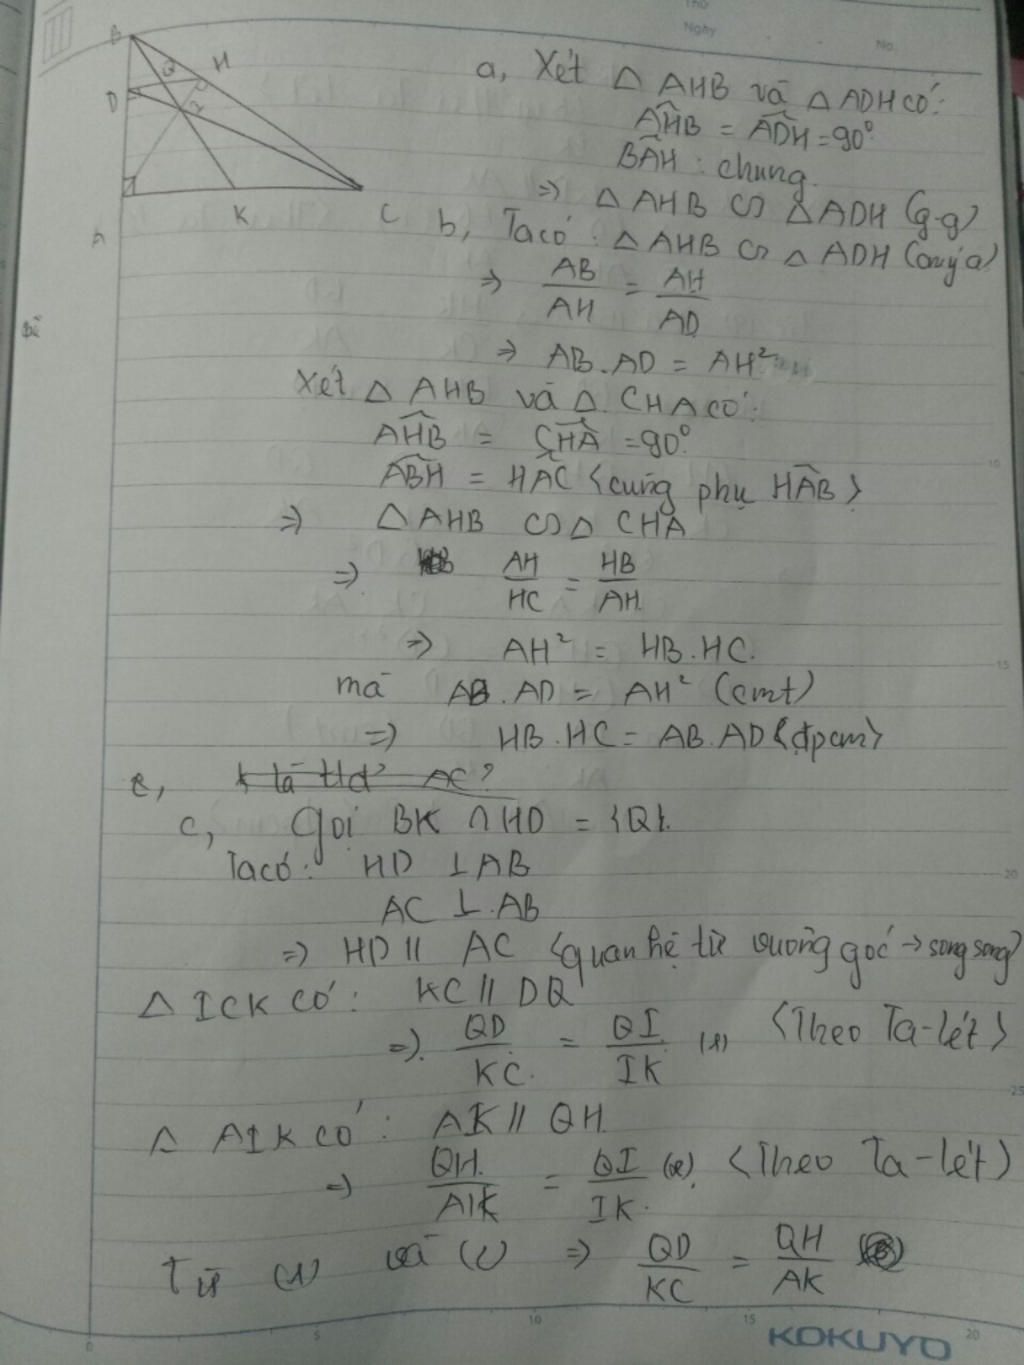 Thứ
Ngày
No.
B
Q
H
D
I
K
C
A
a, Xét △ AHB và △ ADH có:
AHB = ADH = 90°
BAH : chung.
=> △ AHB ∽ △ ADH (g-g)
b, Ta có : △ AHB ∽ △ ADH (câu a)
=> AB/AH = AH/AD
=> AB.AD = AH²
Xét △ AHB và △ CHA có:
AHB = CHA = 90°
ABH = HAC {cùng phụ HAB}
=> △ AHB ∽ △ CHA
=> AH/HC = HB/AH
=> AH² = HB.HC.
mà AB.AD = AH² (cmt)
=> HB.HC = AB.AD {đpcm}
c, Gọi BK ∩ HD = {Q}.
Ta có: HD ⊥ AB
AC ⊥ AB
=> HD // AC {quan hệ từ vuông góc → song song}
△ ICK có: KC // DQ
=> QD/KC = QI/IK (1) {Theo Ta-lét}
△ AIK có: AK // QH
=> QH/AK = QI/IK (2). {Theo Ta-lét}
Từ (1) và (2) => QD/KC = QH/AK
5
10
15
20
10
15
20
25
KOKUYO